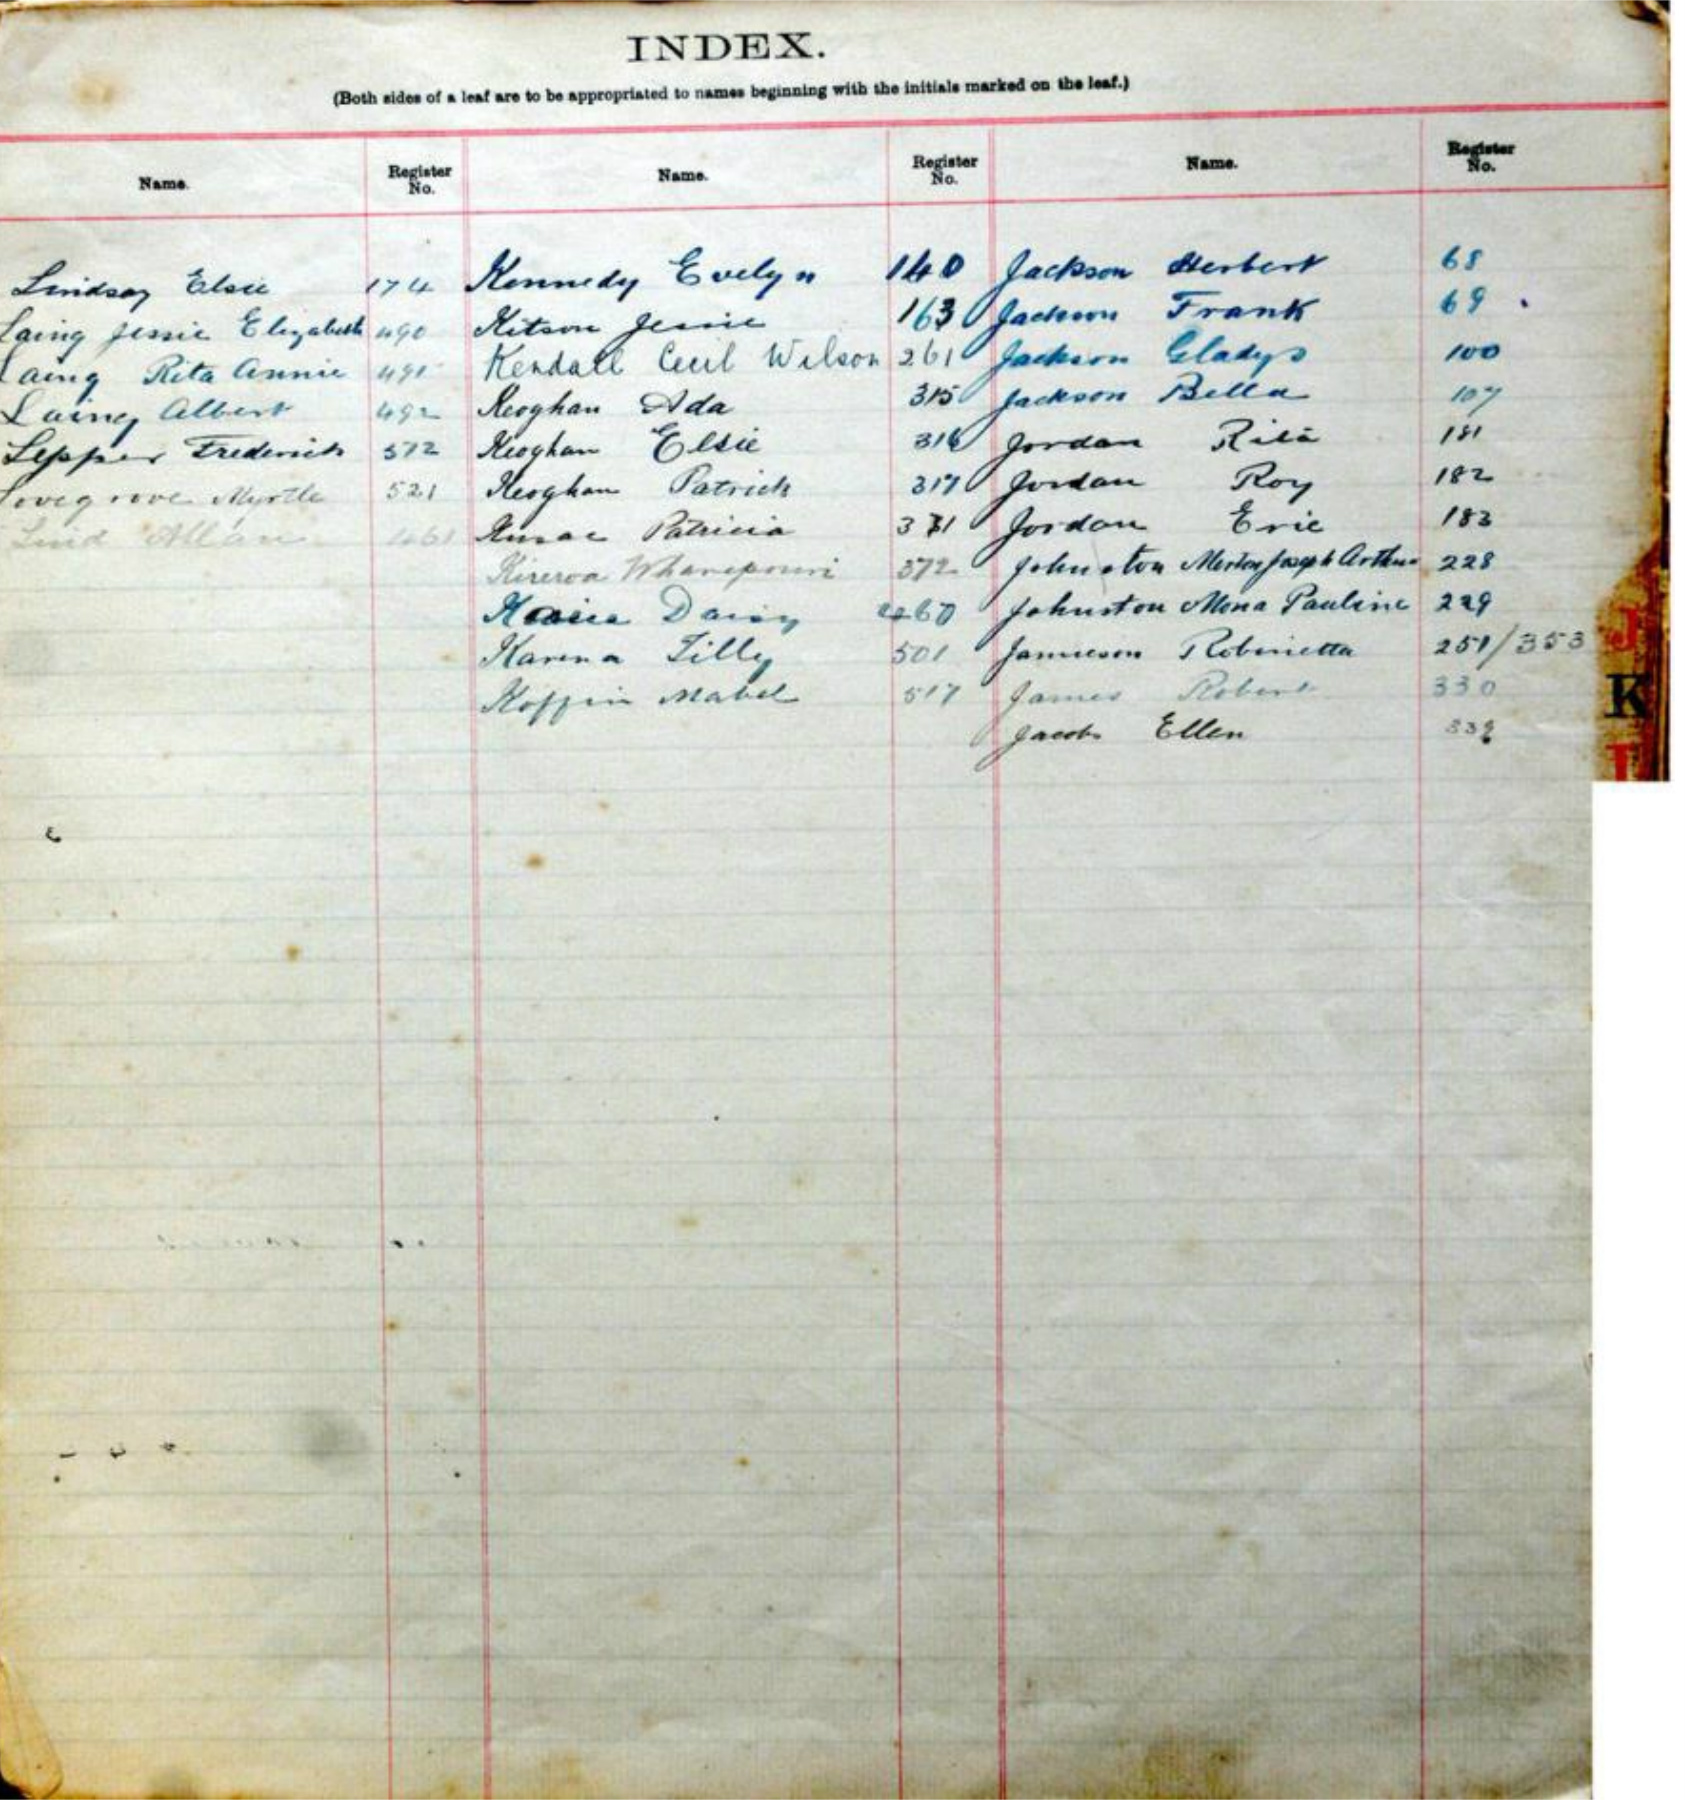 INDEX.
(Both sides of a leaf are to be appropriated to names beginning with the initials marked on the leaf.)
Name. Register No. Name. Register No. Name. Register No.
Lindsay Elsie 174 Kennedy Evelyn 140 Jackson Herbert 68
Laing Jessie Elizabeth 490 Kitson Jessie 163 Jackson Frank 69
Laing Rita Annie 491 Kendall Cecil Wilson 261 Jackson Gladys 100
Laing Albert 492 Keoghan Ada 315 Jackson Bella 107
Lepper Frederick 512 Keoghan Elsie 316 Jordan Rita 181
Lovegrove Myrtle 521 Keoghan Patrick 317 Jordan Roy 182
Lind Allan Patricia Jordan Eric 183
372 Johnston Joseph Arthur 228
Daisy 460 Johnston Mona Pauline 229
Karena Tilly 501 Jamieson Robinetta 251/353
Koffin Mabel 517 James Robert 330
Jacobs Ellen
J
K
L